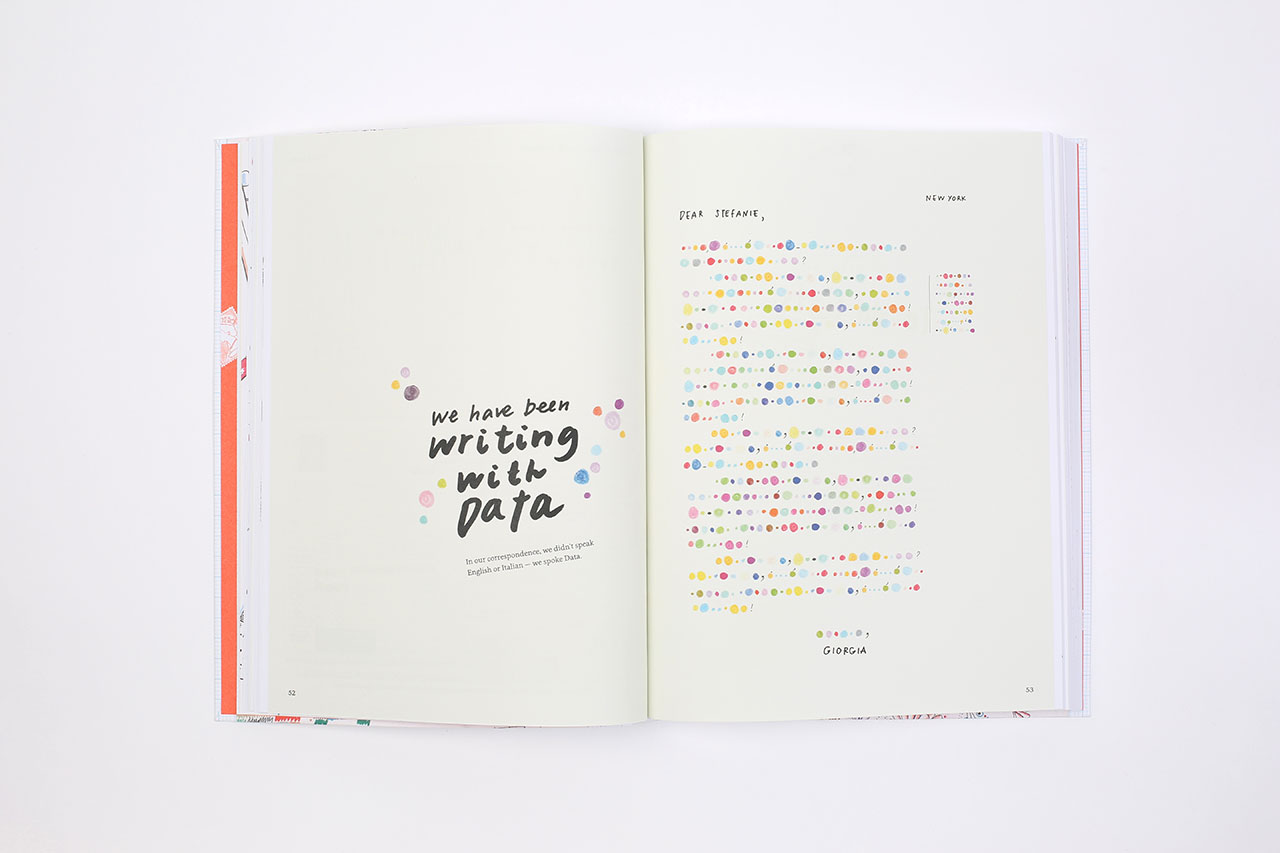 we have been
writing
with
Data
In our correspondence, we didn't speak
English or Italian — we spoke Data.
52
NEW YORK
DEAR STEFANIE,
GIORGIA
53